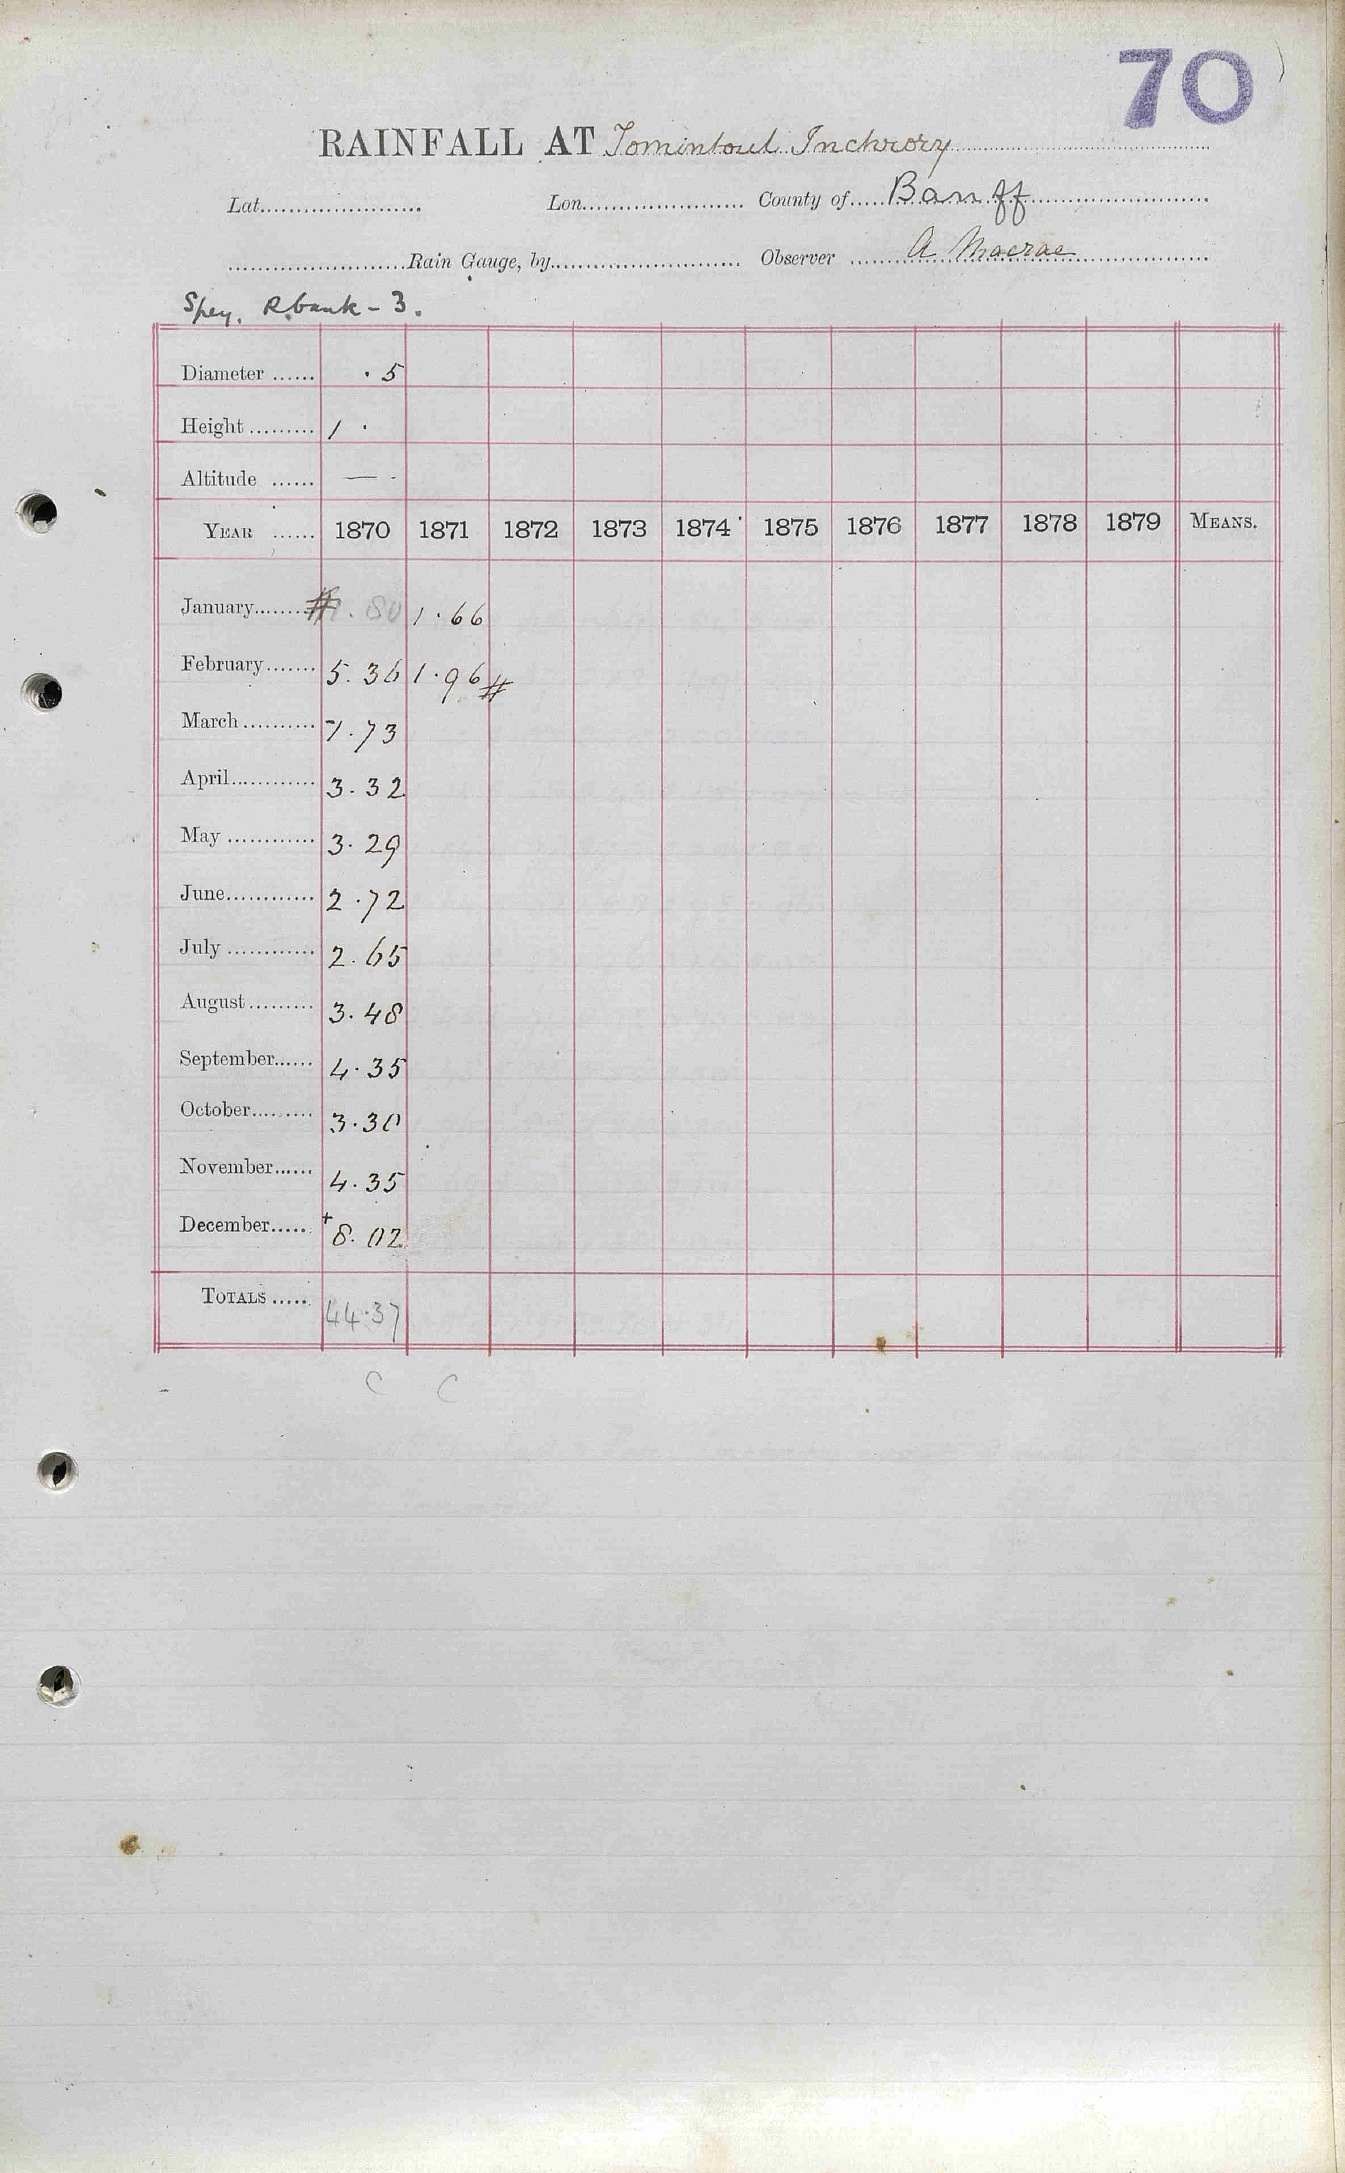 70
RAINFALL AT Tomintoul Inchrory
Lat. Lon. County of Banff
Rain Gauge, by Observer A Macrae
Spey. R bank - 3.
Diameter ...... .5
Height ......... 1 .
Altitude ...... — -
YEAR ...... 1870 1871 1872 1873 1874 1875 1876 1877 1878 1879 MEANS.
January ........ # 1.80 1.66
February ....... 5.36 1.96 #
March .......... 1.73
April ............ 3.32
May ............ 3.29
June ............ 2.72
July ............ 2.65
August ......... 3.48
September ...... 4.35
October ......... 3.30
November ...... 4.35
December ..... + 8.02
TOTALS ..... 44.37
C C